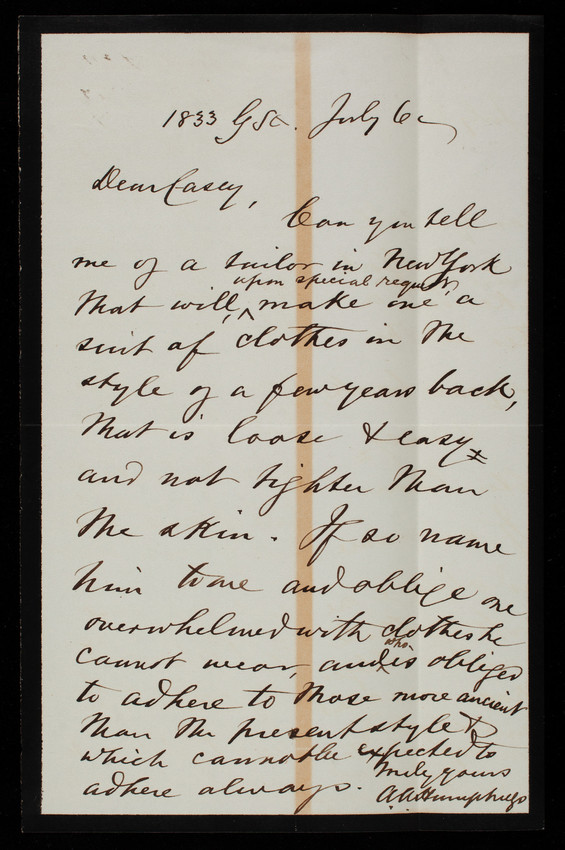 1833 G St. July 6
Dear Casey,
Can you tell
me of a tailor in New York
upon special request,
that will, make me a
suit of clothes in the
style of a few years back,
that is loose & easy
and not tighter than
the skin. If so name
him to me and oblige one
overwhelmed with clothes he
who
cannot wear, and is obliged
to adhere to those more ancient
than the present style &
which cannot be expected to
Truly yours
adhere always.
A A Humphreys